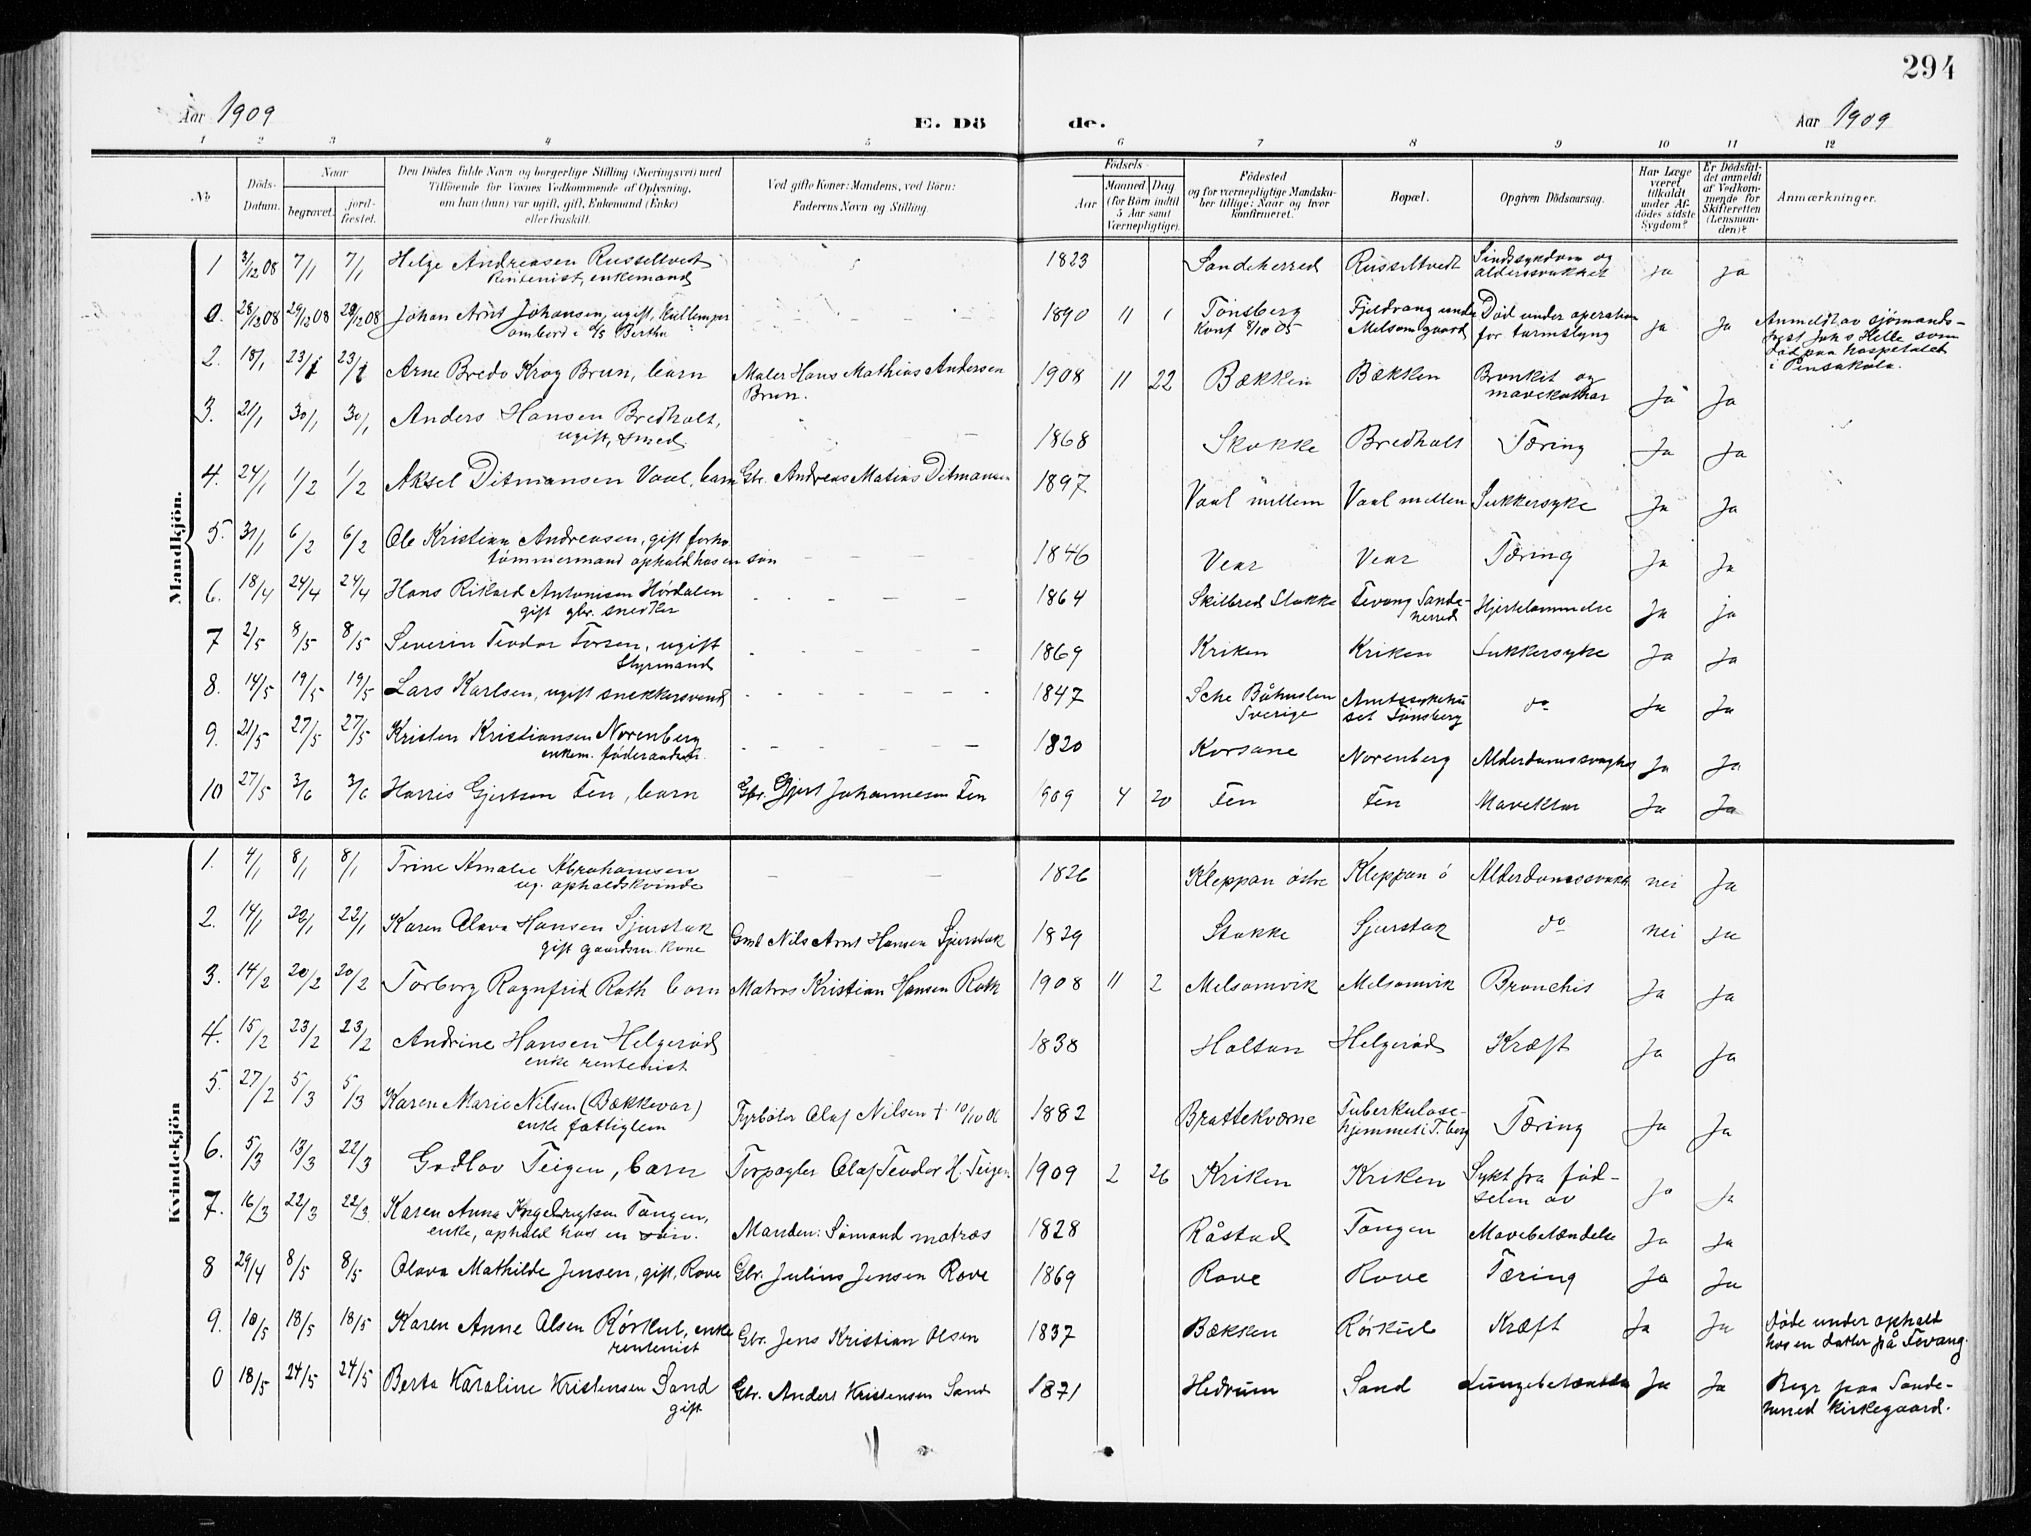 294
Aar 1909 E. Dö de. Aar 1909
1 2 3 4 5 6 7 8 9 10 11 12
No
Döds-Datum.
Naar
begravet.
jord-fæstet.
Den Dödes fulde Navn og borgerlige Stilling (Næringsvei) med
Tilföiende for Voxnes Vedkommende af Oplysning,
om han (hun) var ugift, gift, Enkemand (Enke)
eller fraskilt.
Ved gifte Koner: Mandens, ved Börn:
Faderens Navn og Stilling.
Födsels-
Aar
Maaned Dag
(for Börn indtil
5 Aar samt
Værnepligtige).
Födested
og for værnepligtige Mandskaber tillige: Naar og hvor
konfirmeret.
Bopæl.
Opgiven Dödsaarsag.
Har Læge
været
tilkaldt
under Afdödes sidste
Sygdom?
Er Dödsfaldet anmeldt
af Vedkommende for
Skifteretten
(Lensmanden)?
Anmærkninger.
Mandkjön.
1 3/12 08 7/1 7/1 Helge Andreasen Russeltvedt 1823 Sandeherred Russeltvedt Sindssykdom og ja ja
Rentenist, enkemand alderssvakhet
0. 28/12 08 29/12 08 29/12 08 Johan Arnt Johansen, ugift, Kullemper 1890 11 1 Tønsberg Fjeldvang under Død under operation ja Ja Anmeldt av sjømands-
ombord i S/S Bertha konf 1/10 05 Melsom gaard for tarmslyng prest Johs Helle som
død paa hospitalet
i Pensakola.
2. 18/1 23/1 23/1 Arne Bredo Krog Brun, barn Maler Hans Mathias Andersen 1908 11 22 Bækken Bækken Bronkit og Ja Ja
Brun. mavekathar
3. 21/1 30/1 30/1 Anders Hansen Bredholt, 1868 Stokke Bredholt Tæring Ja Ja
ugift, smed
4. 24/1 1/2 1/2 Aksel Ditmansen Vaal, barn Gbr. Andreas Matias Ditmansen 1897 Vaal mellem Vaal mellem Sukkersyke Ja Ja
5. 31/1 6/2 6/2 Ole Kristian Andreasen, gift forhv. 1846 Vear Vear Tæring Ja Ja
tømmermand ophold hos en søn
6. 18/4 24/4 24/4 Hans Rikard Antonisen Hørdalen 1864 Skilbred Stokke Tevang Sande- Hjertelammelse Ja ja
gift gbr. snedker herred
7 2/5 8/5 8/5 Severin Teodor Torsen, ugift 1869 Kriken Kriken Sukkersyke Ja Ja
Styrmand
8. 14/5 19/5 19/5 Lars Karlsen, ugift snekkersvend 1847 Båhuslen Amtssykehu- do Ja Ja
Sverige set Tønsberg
9. 21/5 27/5 27/5 Kristen Kristiansen Norenberg 1820 Korsane Norenberg Alderdomssvaghet Ja Ja
enkem. føderaadsm.
10 27/5 3/6 3/6 Harris Gjertsen Fen, barn Gbr. Gjert Johannesen Fen 909 4 20 Fen Fen Ja Ja
Kvindekjön
1. 4/1 8/1 8/1 Trine Amalie Abrahamsen 1826 Kleppan østre Kleppan ø Alderdomssvakh. nei Ja
ug. opholdskvinde
2. 14/1 22/1 22/1 Karen Olava Hansen Sjurstok Gmd Nils Arnt Hansen Sjurstok 1829 Stokke Sjurstok do nei Ja
gift gaardsm. kone
3. 14/2 20/2 20/2 Torborg Ragnfrid Roth barn Matros Kristian Hansen Roth 1908 11 2 Melsomvik Melsomvik Bronchis Ja Ja
4. 15/2 23/2 23/2 Andrine Hansen Helgerød 1838 Holtan Helgerød Kræft Ja Ja
enke rentenist
5. 27/2 5/3 5/3 Karen Marie Nilsen (Bækkevar) Fyrbøter Olaf Nilsen † 10/10 06 1882 Brattekværne Tuberkulose- Tæring Ja Ja
enke fattiglem hjemmet i T.berg
6. 5/3 13/3 22/3 Gudlov Teigen, barn Olaf Teodor H. Teigen 1909 2 26 Kriken Kriken Sykt fra fød- Ja Ja
selen av
7. 16/3 22/3 22/3 Karen Anna Ingebrigtsen Tangen, Manden: Sømand matros 1828 Råstad Tangen Mavebetændelse Ja Ja
enke, ophold hos en søn.
8 29/4 8/5 8/5 Olava Mathilde Jensen, gift, Rove Gbr. Julius Jensen Rove 1869 Rove Rove Tæring Ja Ja
9. 10/5 18/5 18/5 Karen Anne Olsen Rørkul, enke Gbr. Jens Kristian Olsen 1837 Bækken Rørkul Kræft Ja Ja Døde under ophold
rentenist hos en datter på Tevang.
0 18/5 24/5 24/5 Berta Karoline Kristensen Sand Gbr. Anders Kristensen Sand 1871 Hedrum Sand Lungebetændelse Ja Ja Begr paa Sande-
gift herred kirkegaard.